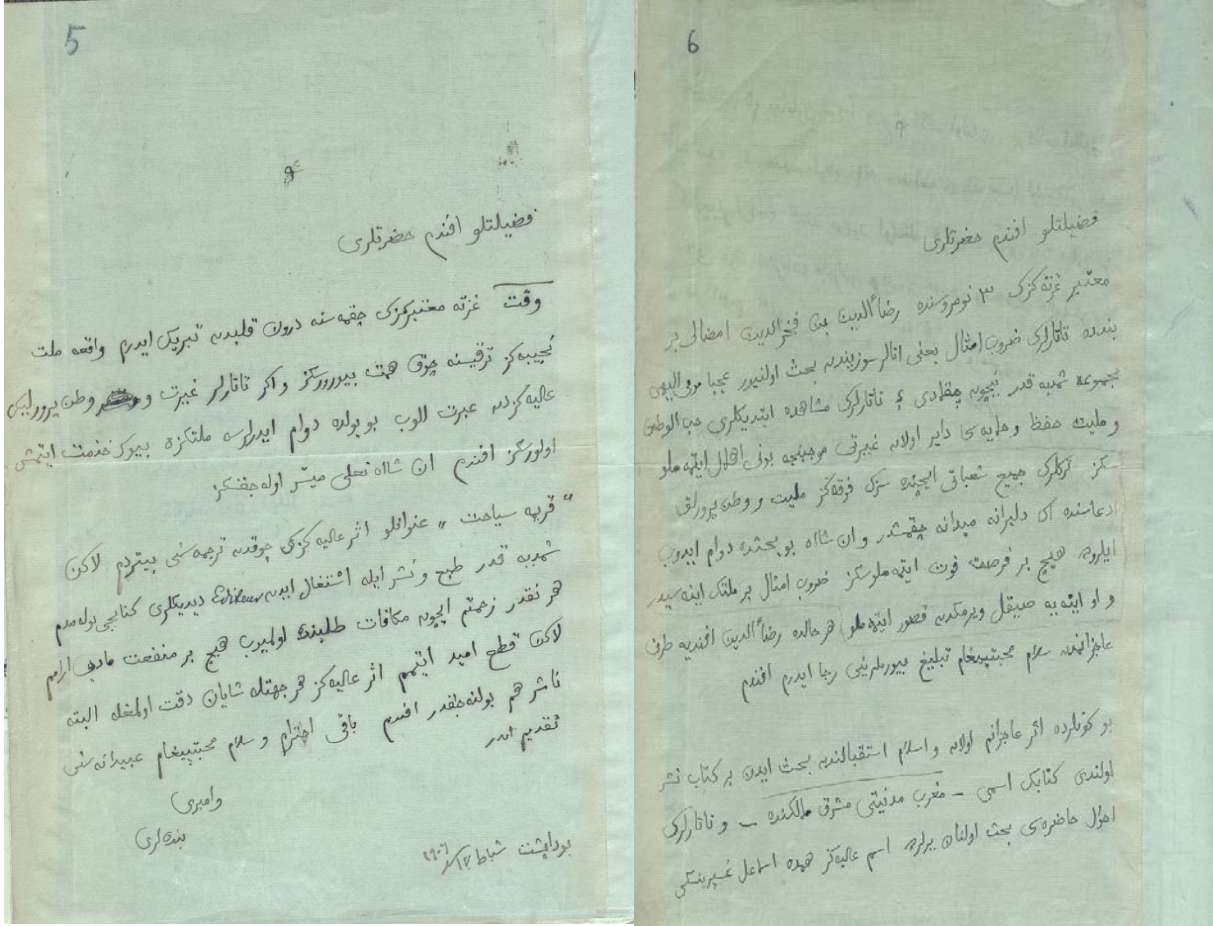 5
فضيلتلو افندم حضرتلرى
وقت غزته معتبركزك چقمه سنه درون قلبدن تبريك ايدرم واقعه ملت
نجيبه كز ترقيسنه چوق همت بيوررسكز واكر تاتارلر غيرت و وطن پرورليك
عاليه كزدن عبرت الوب بو يولده دوام ايدرلرسه ملتكزه بيوك خدمت ايتمش
اولورسكز افندم ان شااه تعلى ميسر اوله جقسكز
„ قريم سياحت „ عنوانلو اثر عاليه كزك چوقدن ترجمه سنى بيتردم لاكن
شمديه قدر طبع و نشر ايله اشتغال ايدن ديديكلرى كتابجى بوله مدم
هر نقدر زحمتم ايچون مكافات طلبنده اولميوب هيچ بر منفعت مادى ارامم
لاكن قطع اميد ايتمم اثر عاليه كز هر جهتله شايان دقت اولمغله البته
ناشر هم بولنه جقدر افندم باقى احترام و سلام محبتپيغام عبيدانه سنى
تقديم ايدر
وامبرى
بنده لرى
بوداپشت شباط ١٢ سنه ١٩٠٦
6
فضيلتلو افندم حضرتلرى
معتبر غزته كزك ٣ نومروسنده رضأ الدين بن فخر الدين امضالى بر
بندده تاتارلرك ضروب امثال يعنى اتالر سوزيندن بحث اولنيور عجبا مولى اليهك
مجموعه شمديه قدر نيچون چقمادى تاتارلرك مشاهده ايتديكلرى حب الوطن
و مليت حفظ و حمايه سنه داير اولان غيرتى موجبنجه بونى اهمال ايتمه ملو
سكز تركلرك جميع شعباتى ايچنده سزك فرقه كز مليت و وطن پرورلك
ادعاسنده اك دليرانه ميدانه چقمشدر و ان شااه بو بحثده دوام ايدوب
ايلروده هيچ بر فرصت فوت ايتمه ملوسكز ضروب امثال بر ملتك اينه سيدر
و او اينه يه صيقل ويرمكدن قصور ايتمه ملو هر حالده رضأ الدين افنديه طرف
عاجزانمدن سلام محبتپيغام تبليغ بيورملرينى رجا ايدرم افندم
بو كونلرده اثر عاجزانم اولان و اسلام استقبالندن بحث ايدن بر كتاب نشر
اولندى كتابك اسمى – مغرب مدنيتى مشرق ممالكنده – و تاتارلرك
احول حاضره سى بحث اولنان يرلرده اسم عاليه كز همده اسماعل غسپرينسكى